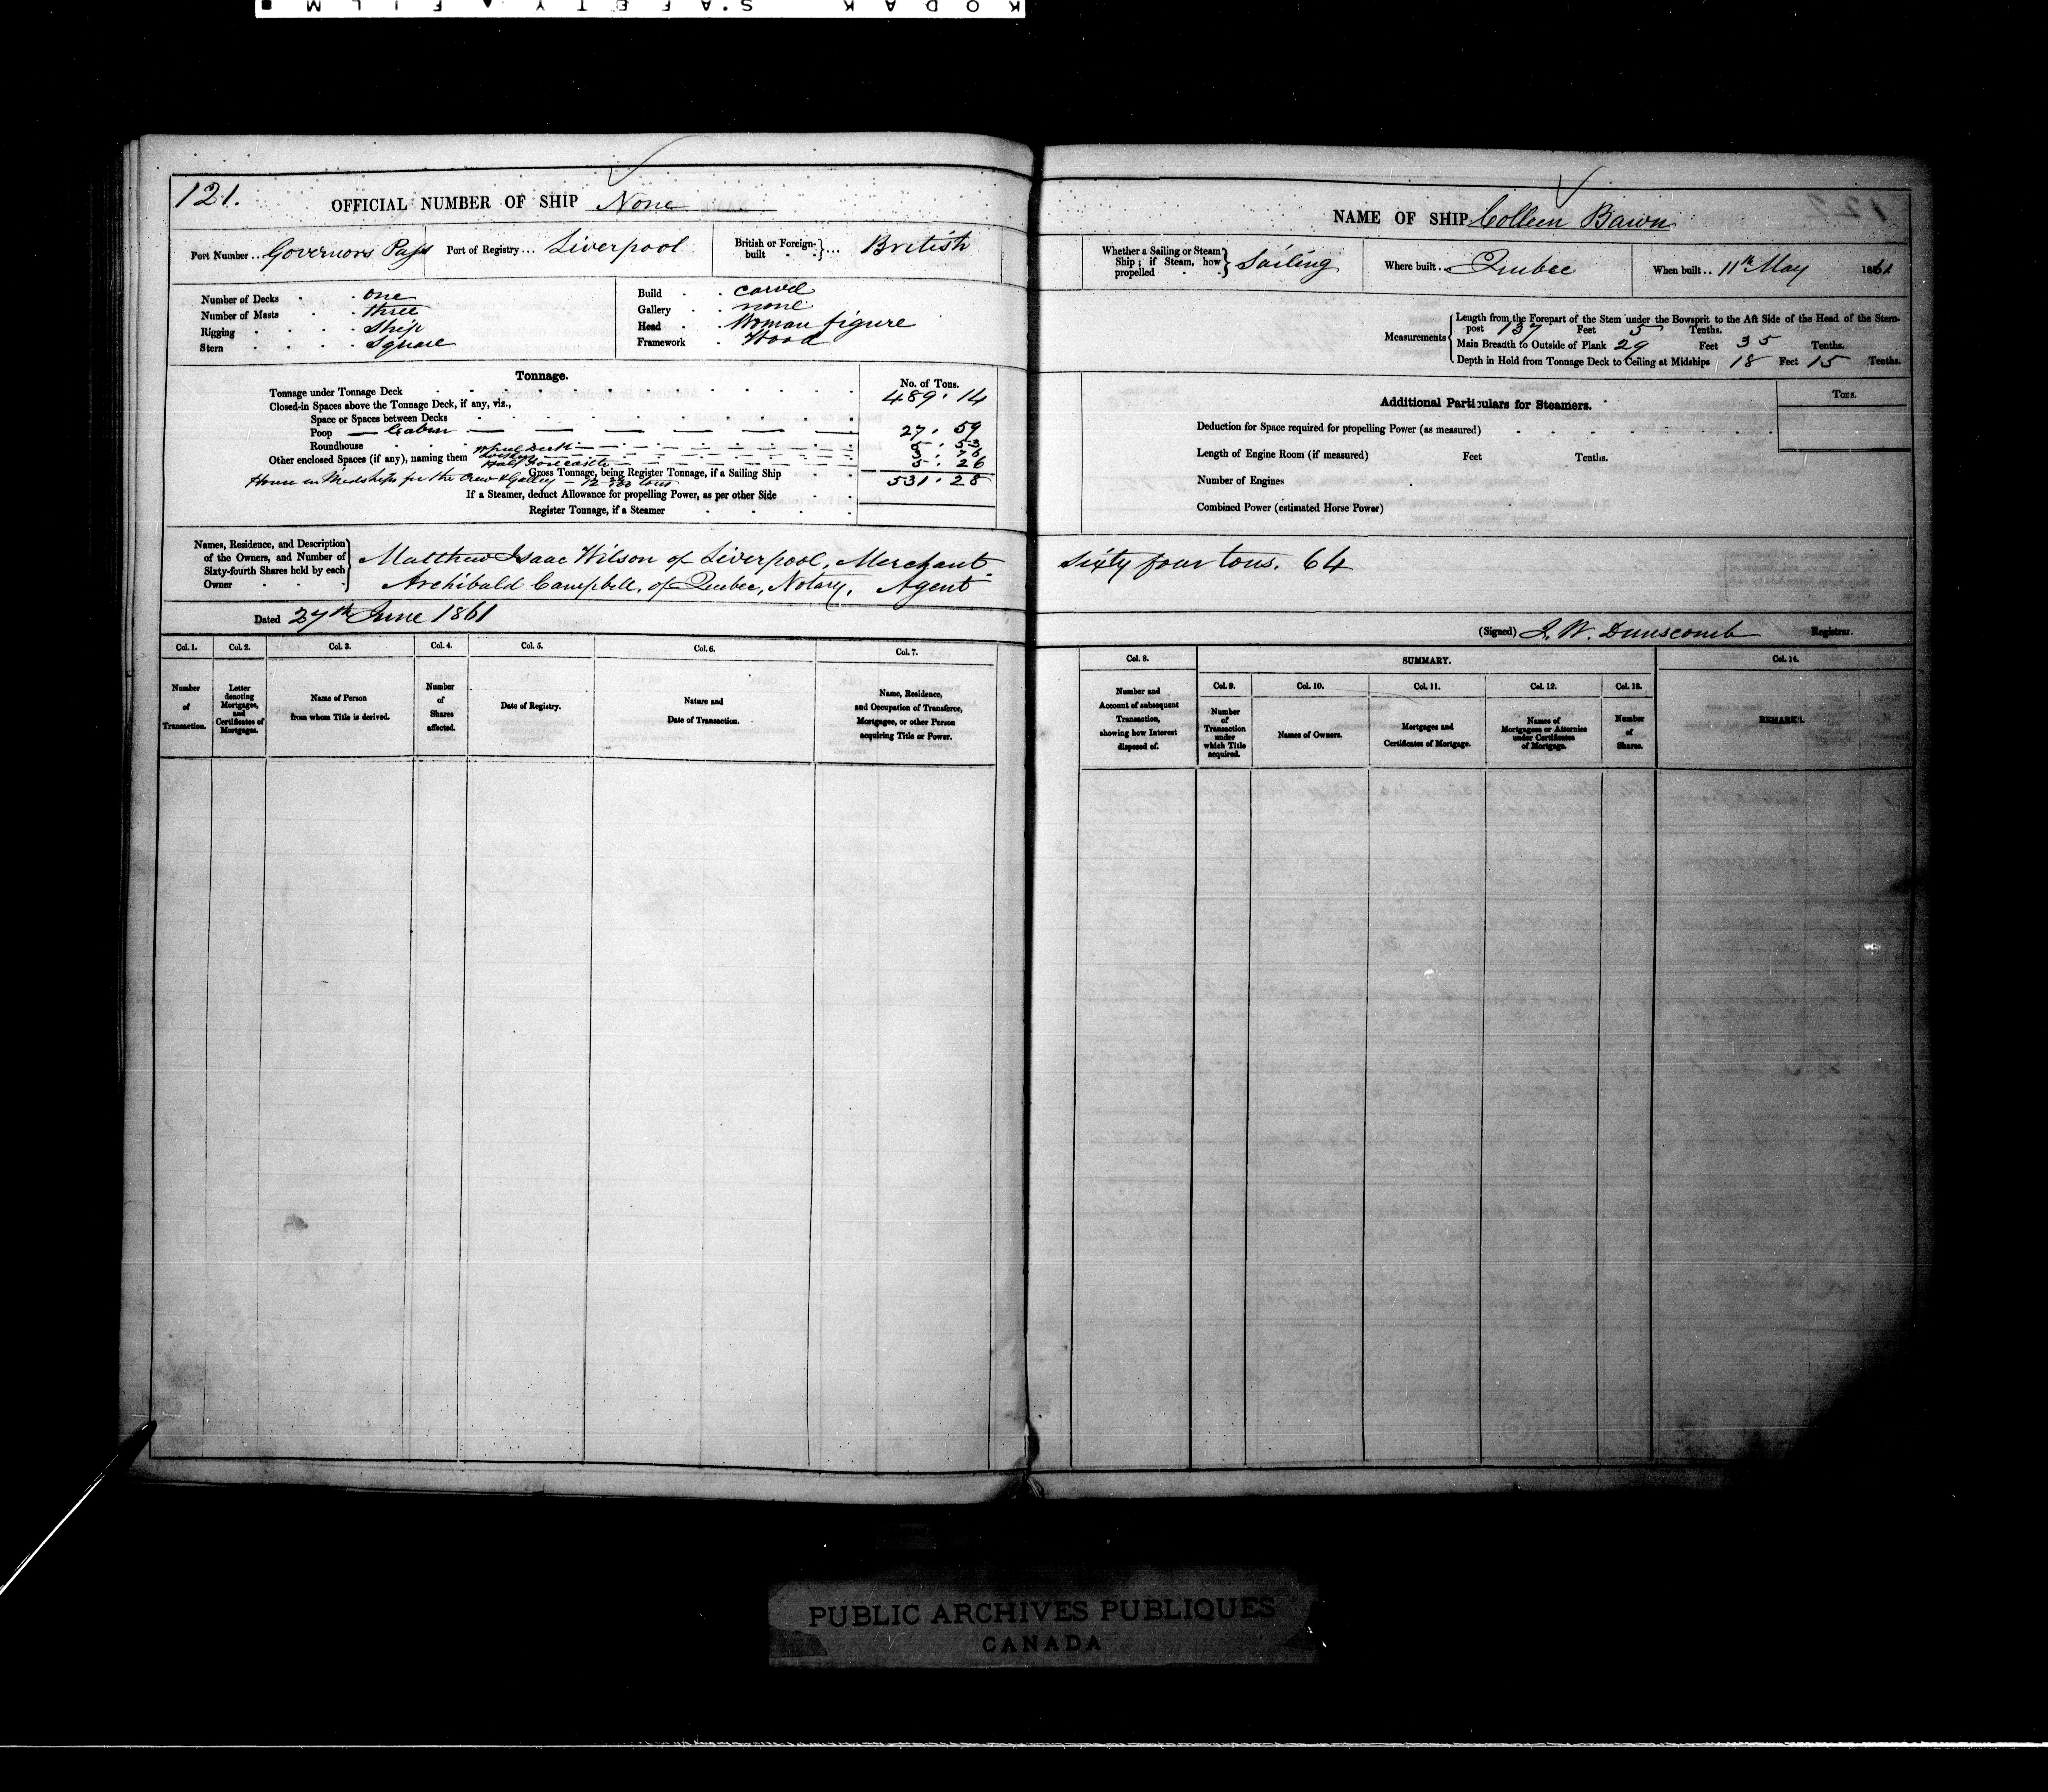 KODAK S'AFETY FILM
121.
OFFICIAL NUMBER OF SHIP None
Port Number .. Governors Pass Port of Registry... Liverpool British or Foreign-built } ... British
Number of Decks . one
Number of Masts . three
Rigging . Ship
Stern . Square
Build . carvel
Gallery . none
Head . Woman figure
Framework . Wood
Tonnage.
No. of Tons.
Tonnage under Tonnage Deck 489 . 14
Closed-in Spaces above the Tonnage Deck, if any, viz.,
Space or Spaces between Decks
Poop — Cabin — 27 . 59
Roundhouse 5 . 53
Other enclosed Spaces (if any), naming them
Half Forecastle 5 . 26
Gross Tonnage, being Register Tonnage, if a Sailing Ship 531 . 28
House in Midships for the Crew & Galley — 12 tons
If a Steamer, deduct Allowance for propelling Power, as per other Side
Register Tonnage, if a Steamer
Names, Residence, and Description of the Owners, and Number of Sixty-fourth Shares held by each Owner
Matthew Isaac Wilson of Liverpool, Merchant
Archibald Campbell, of Quebec, Notary, Agent
Dated 27th June 1861
Col. 1. Col. 2. Col. 3. Col. 4. Col. 5. Col. 6. Col. 7.
Number of Transaction.
Letter denoting Mortgages, and Certificates of Mortgages.
Name of Person from whom Title is derived.
Number of Shares affected.
Date of Registry.
Nature and Date of Transaction.
Name, Residence, and Occupation of Transferee, Mortgagee, or other Person acquiring Title or Power.
NAME OF SHIP Colleen Bawn
Whether a Sailing or Steam Ship; if Steam, how propelled } Sailing Where built .. Quebec When built .. 11th May 1861
Measurements
Length from the Forepart of the Stem under the Bowsprit to the Aft Side of the Head of the Stern-
post 137 Feet 5 Tenths.
Main Breadth to Outside of Plank 29 Feet 35 Tenths.
Depth in Hold from Tonnage Deck to Ceiling at Midships 18 Feet 15 Tenths.
Additional Particulars for Steamers.
Tons.
Deduction for Space required for propelling Power (as measured)
Length of Engine Room (if measured) Feet Tenths.
Number of Engines
Combined Power (estimated Horse Power)
Sixty four tons. 64
(Signed) J. W. Dunscomb Registrar.
Col. 8. SUMMARY. Col. 14.
Number and Account of subsequent Transaction, showing how Interest disposed of.
Col. 9. Col. 10. Col. 11. Col. 12. Col. 13.
Number of Transaction under which Title acquired.
Names of Owners.
Mortgages and Certificates of Mortgage.
Names of Mortgagees or Attornies under Certificates of Mortgage.
Number of Shares.
REMARKS.
PUBLIC ARCHIVES PUBLIQUES
CANADA